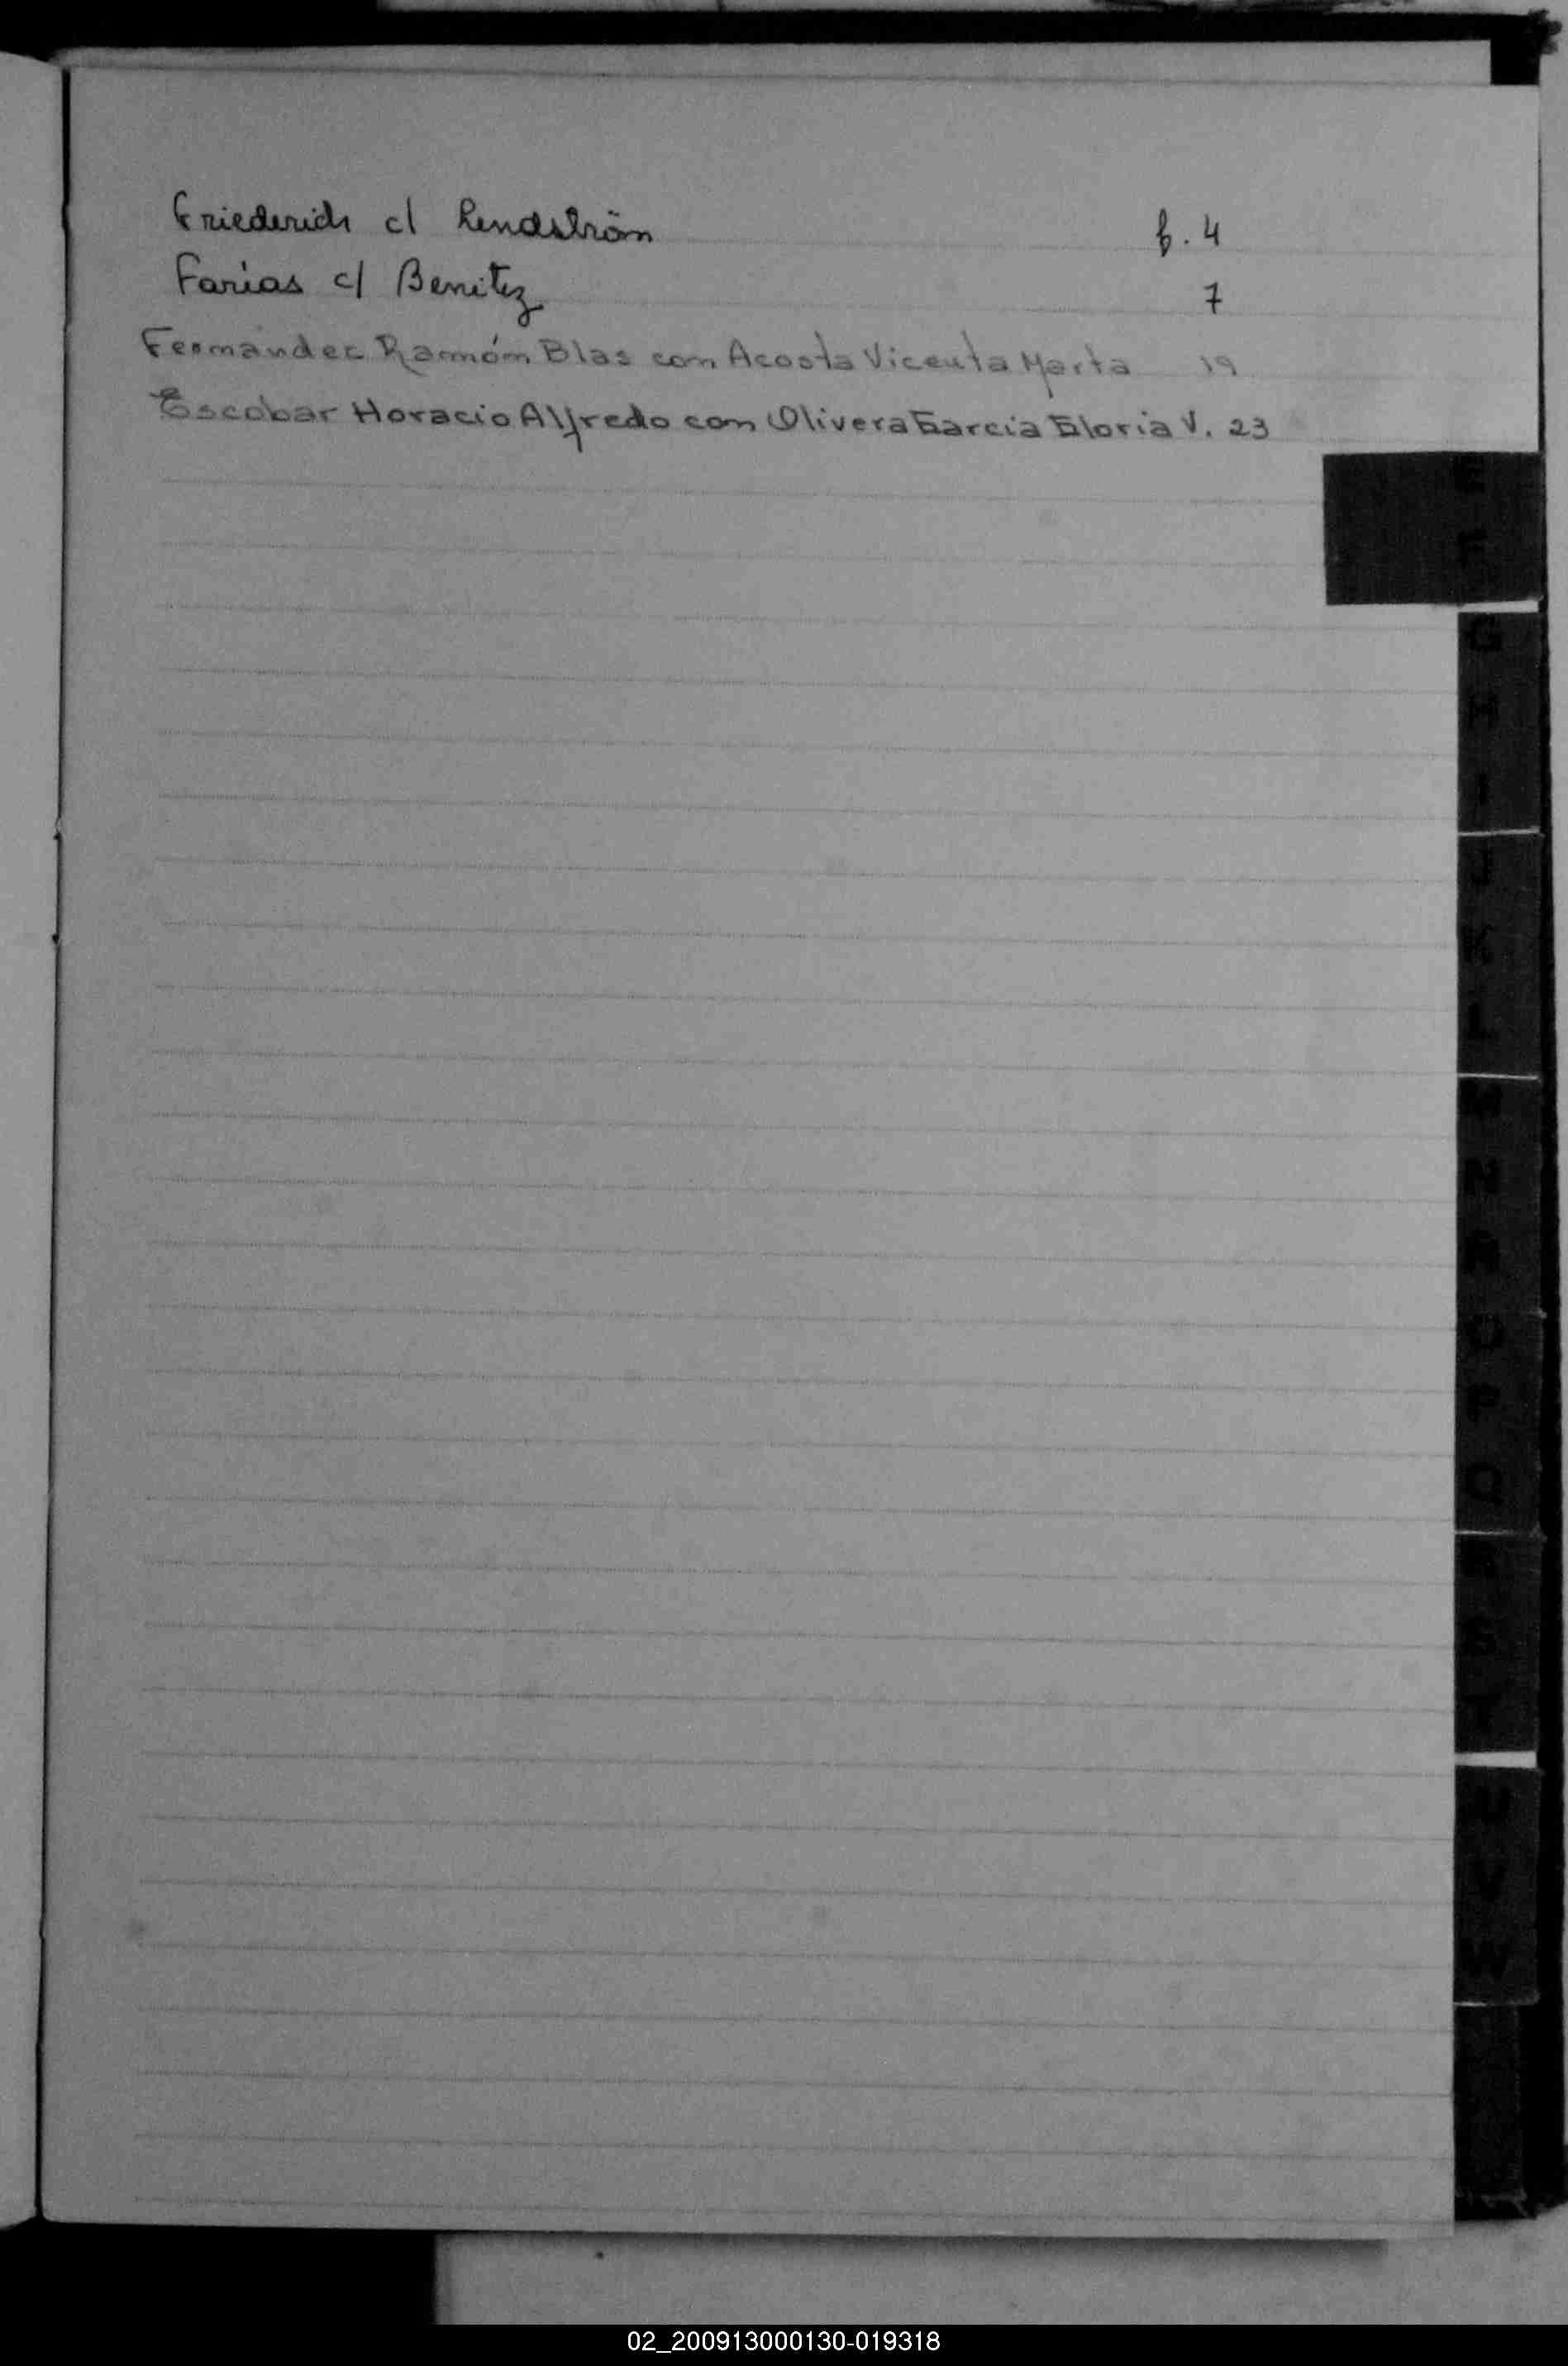 Friederich c/ Lendström f. 4
Farías c/ Benitez 7
Fernandez Ramón Blas con Acosta Vicenta Marta 19
Escobar Horacio Alfredo con Olivera García Gloria V. 23
E
F
G
H
I
J
K
L
M
N
Ñ
O
P
Q
R
S
T
U
V
W
02_200913000130-019318